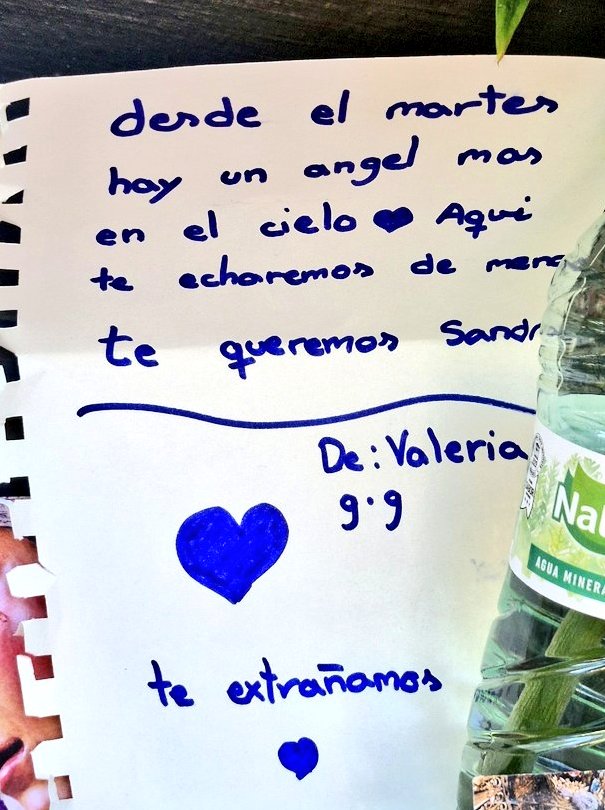 desde el martes
hay un angel mas
en el cielo Aqui
te echaremos de
te queremos
De: Valeria
g.g
te extrañamos
AGUA